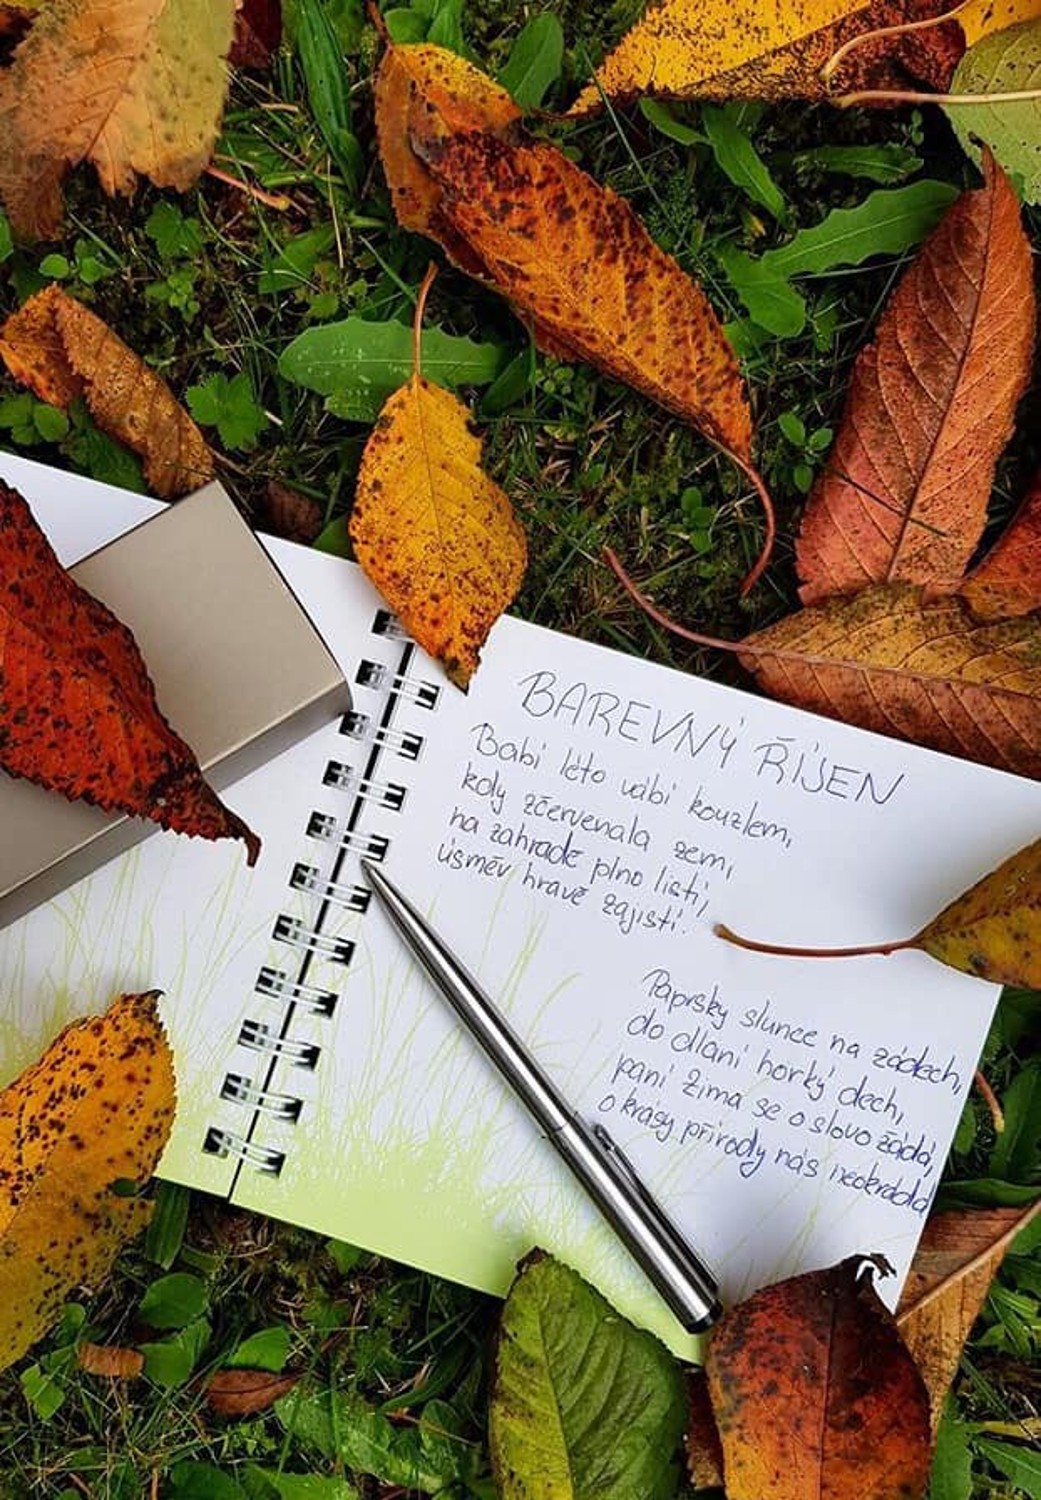 BAREVNÝ ŘÍJEN
Babí léto vábí kouzlem,
kdy zčervenala zem,
na zahradě plno listí,
úsměv hravě zajistí.
Paprsky slunce na zádech,
do dlaní horký dech,
paní Zima se o slovo žádá,
o krásy přírody nás neokrádá